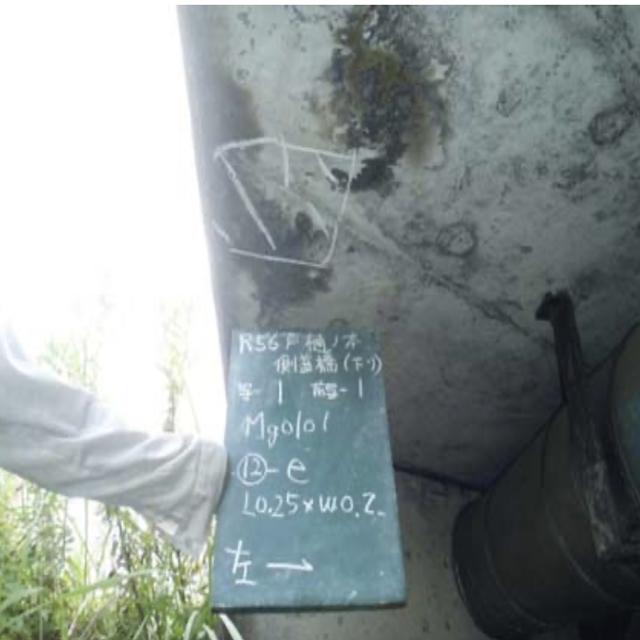 R56 戸楠ノ木
側道橋(下り)
径-1 部-1
Mg0101
⑫-e
L0.25×W0.2
左→